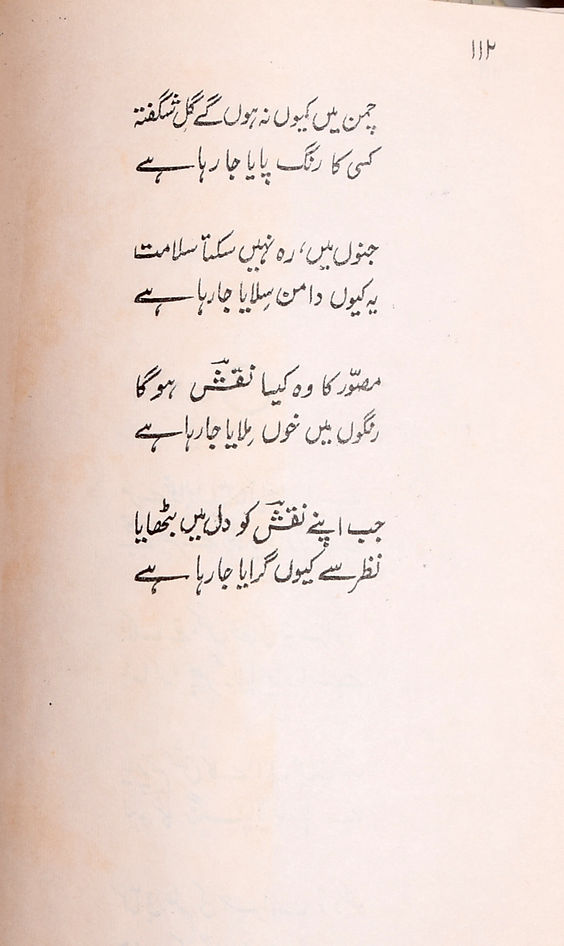 ۱۱۲
چمن میں کیوں نہ ہوں گے گلِ شگفتہ
کسی کا رنگ پایا جا رہا ہے
جنوں میں، رہ نہیں سکتا سلامت
یہ کیوں دامن سِلایا جا رہا ہے
مصوّر کا وہ کیسا نقشؔ ہو گا
رنگوں میں خوں مِلایا جا رہا ہے
جب اپنے نقشؔ کو دل میں بٹھایا
نظر سے کیوں گرایا جا رہا ہے